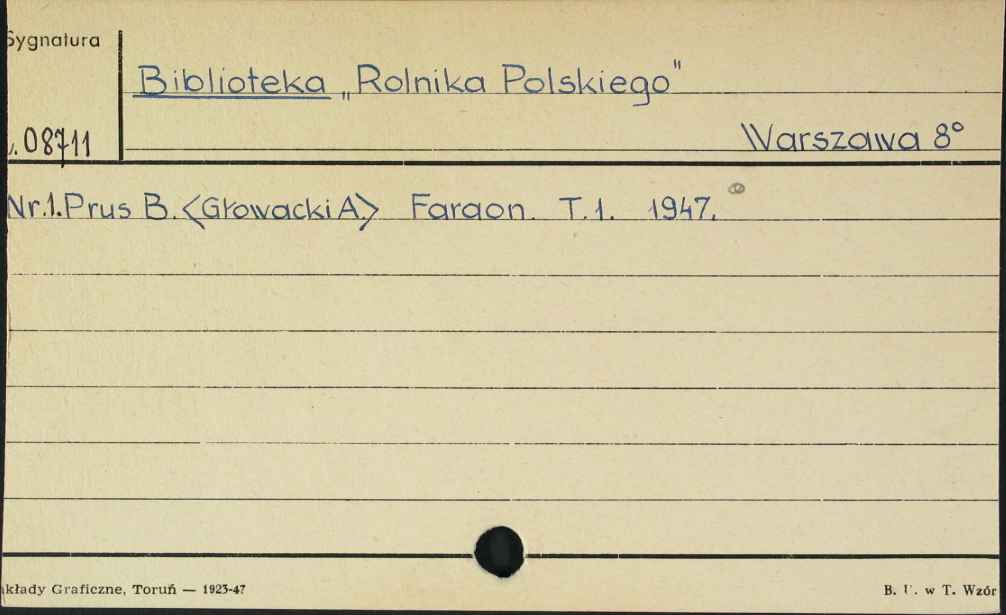 Sygnatura
Biblioteka „Rolnika Polskiego"
08711
Warszawa 8°
Nr.1. Prus B. <Głowacki A.> Faraon. T.1. 1947.
kłady Graficzne, Toruń — 1923-47
B. U. w T. Wzór